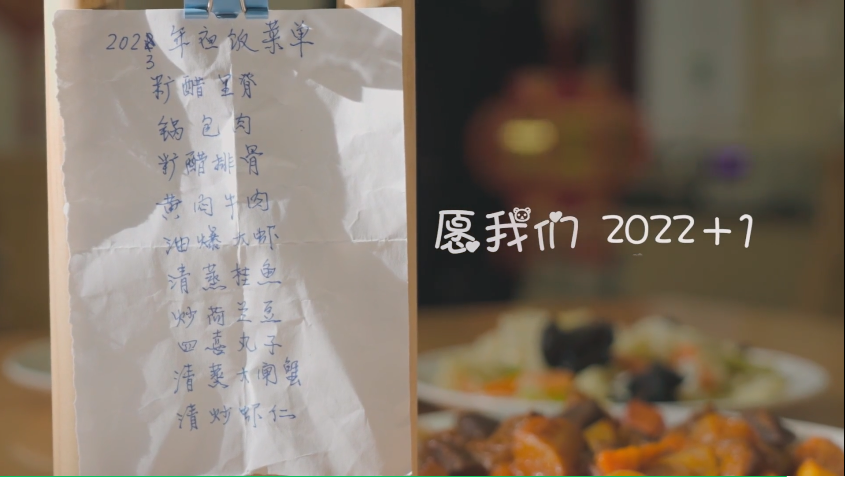 2023 年夜饭菜单
籵醋里脊
锅包肉
籵醋排骨
黄肉牛肉
油爆大虾
清蒸桂鱼
炒荷兰豆
四喜丸子
清蒸大闸蟹
清炒虾仁
愿我们 2022+1